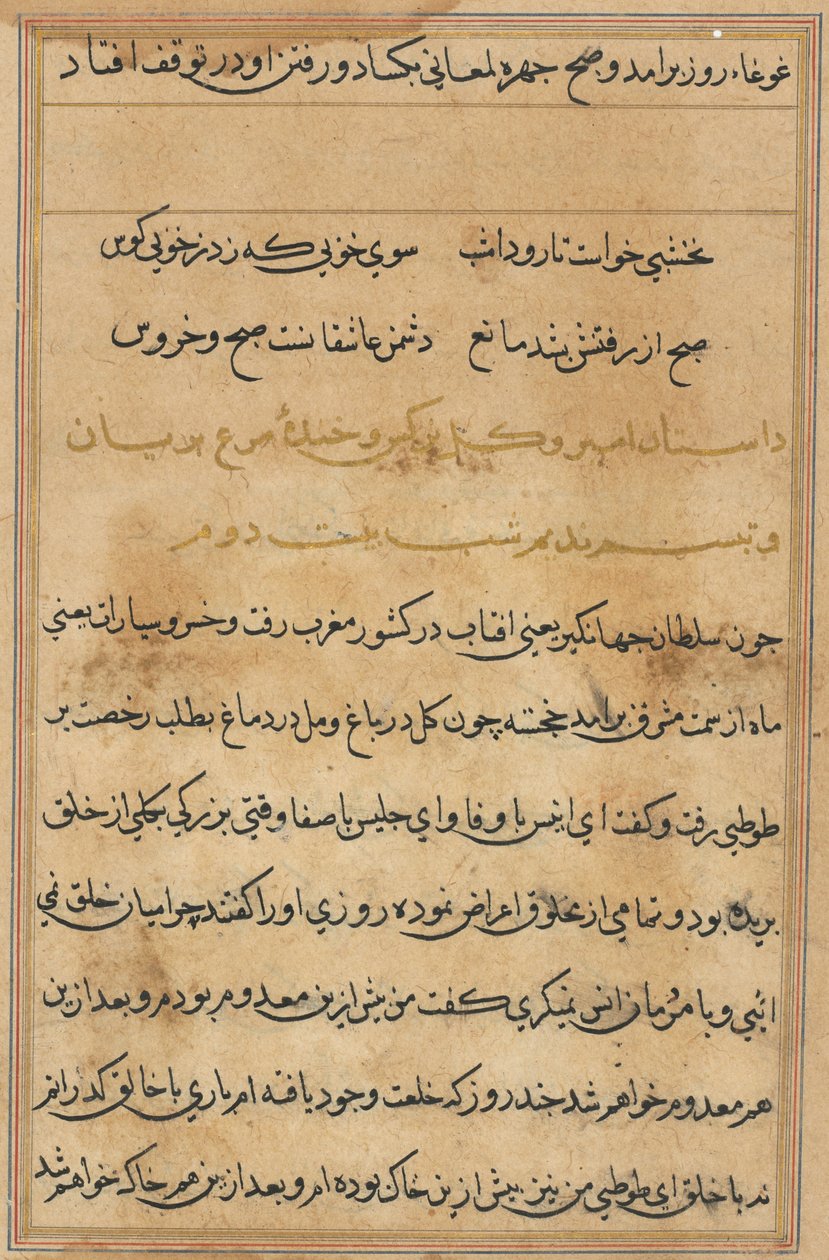 غوغاء روز برامد و صبح جهره لمعاني بكساد و رفتن او در توقف افتاد
نخشبي خواست تا رود امشب سوي خوبي كه زد ز خوبي كوس
صبح از رفتنش بشد مانع دشمن عاشقانست صبح و خروس
داستان امير و كل نركس و خندهٔ مرغ بريان
و تبسم نديم شب بيست دوم
جون سلطان جهانكير يعني افتاب در كشور مغرب رفت و خسرو سيارات يعني
ماه از سمت مشرق برامد خجسته چون كل در باغ و مل در دماغ بطلب رخصت بر
طوطي رفت و كفت اي انيس با وفا و اي جليس با صفا وقتي بزركي بكلي از خلق
بريده بود و تمامي از مخلوق اعراض نموده روزي او را كفتند چرا ميان خلق نمي
ائي و با مردمان انس نميكري كفت من پيش ازين معدوم بودم و بعد ازين
هم معدوم خواهم شد جند روز كه خلعت وجود يافته ام باري با خالق كذرانم
نه با خلق اي طوطي من نيز بيش ازين خاك بوده ام و بعد ازين هم خاك خواهم شد